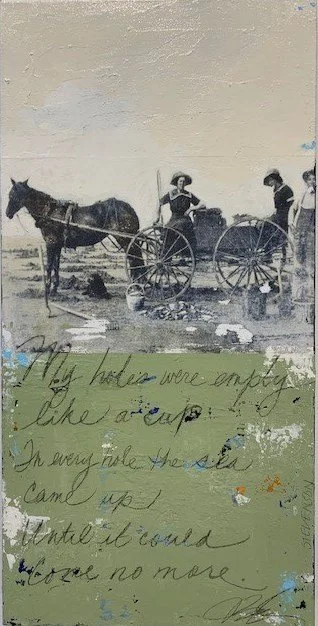 My holes were empty
like a cup
In every hole the sea
came up
Until it could
come no more.